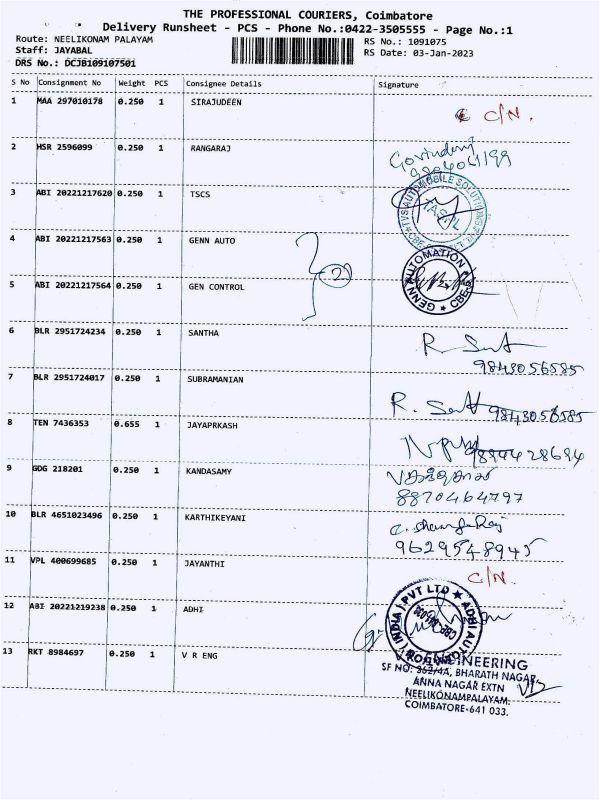 THE PROFESSIONAL COURIERS, Coimbatore
Delivery Runsheet - PCS - Phone No.:0422-3505555 - Page No.:1
Route: NEELIKONAM PALAYAM
RS No.: 1091075
Staff: JAYABAL
RS Date: 03-Jan-2023
DRS No.: DCJB109107501
S No Consignment No Weight PCS Consignee Details Signature
1 MAA 297010178 0.250 1 SIRAJUDEEN C/N.
2 HSR 2596099 0.250 1 RANGARAJ
3 ABI 20221217620 0.250 1 TSCS
4 ABI 20221217563 0.250 1 GENN AUTO
5 ABI 20221217564 0.250 1 GEN CONTROL
6 BLR 2951724234 0.250 1 SANTHA
9843056585
7 BLR 2951724017 0.250 1 SUBRAMANIAN 9843056585
8 TEN 7436353 0.655 1 JAYAPRKASH
9 GDG 218201 0.250 1 KANDASAMY
8870464797
10 BLR 4651023496 0.250 1 KARTHIKEYANI
9629548945
11 VPL 400699685 0.250 1 JAYANTHI C/N.
12 ABI 20221219238 0.250 1 ADHI
13 RKT 8984697 0.250 1 V R ENG
SF NO: 362/4A, BHARATH NAGAR
ANNA NAGAR EXTN
NEELIKONAMPALAYAM.
COIMBATORE-641 033.